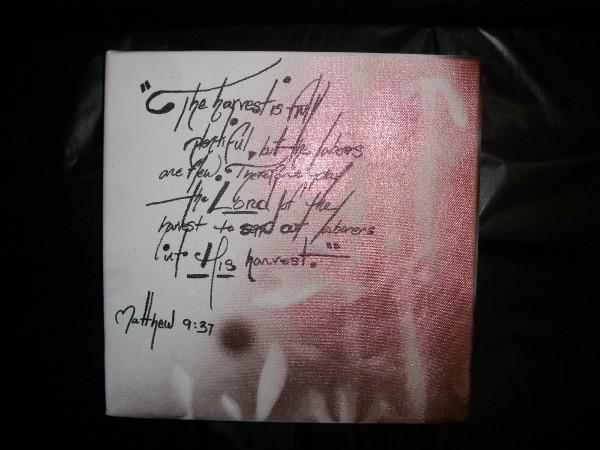 "The harvest is full
plentiful, but the labors
are few. Therefore pray
the Lord of the
harvest to send out laborers
into His harvest."
Matthew 9:37